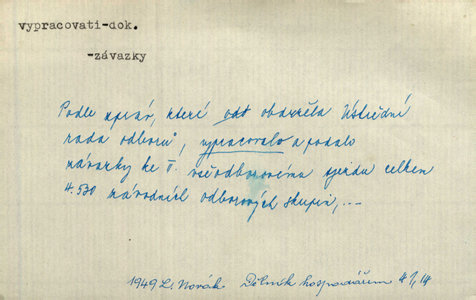 vypracovati-dok.
-závazky
Podle zpráv, které odt obdržela Ústřední
rada odborů, vypracovalo a podalo
závazky ke II. všeodborovému sjezdu celkem
4.530 závodních odborových skupin, ...
1949 L. Novák Dělník hospodářem 4